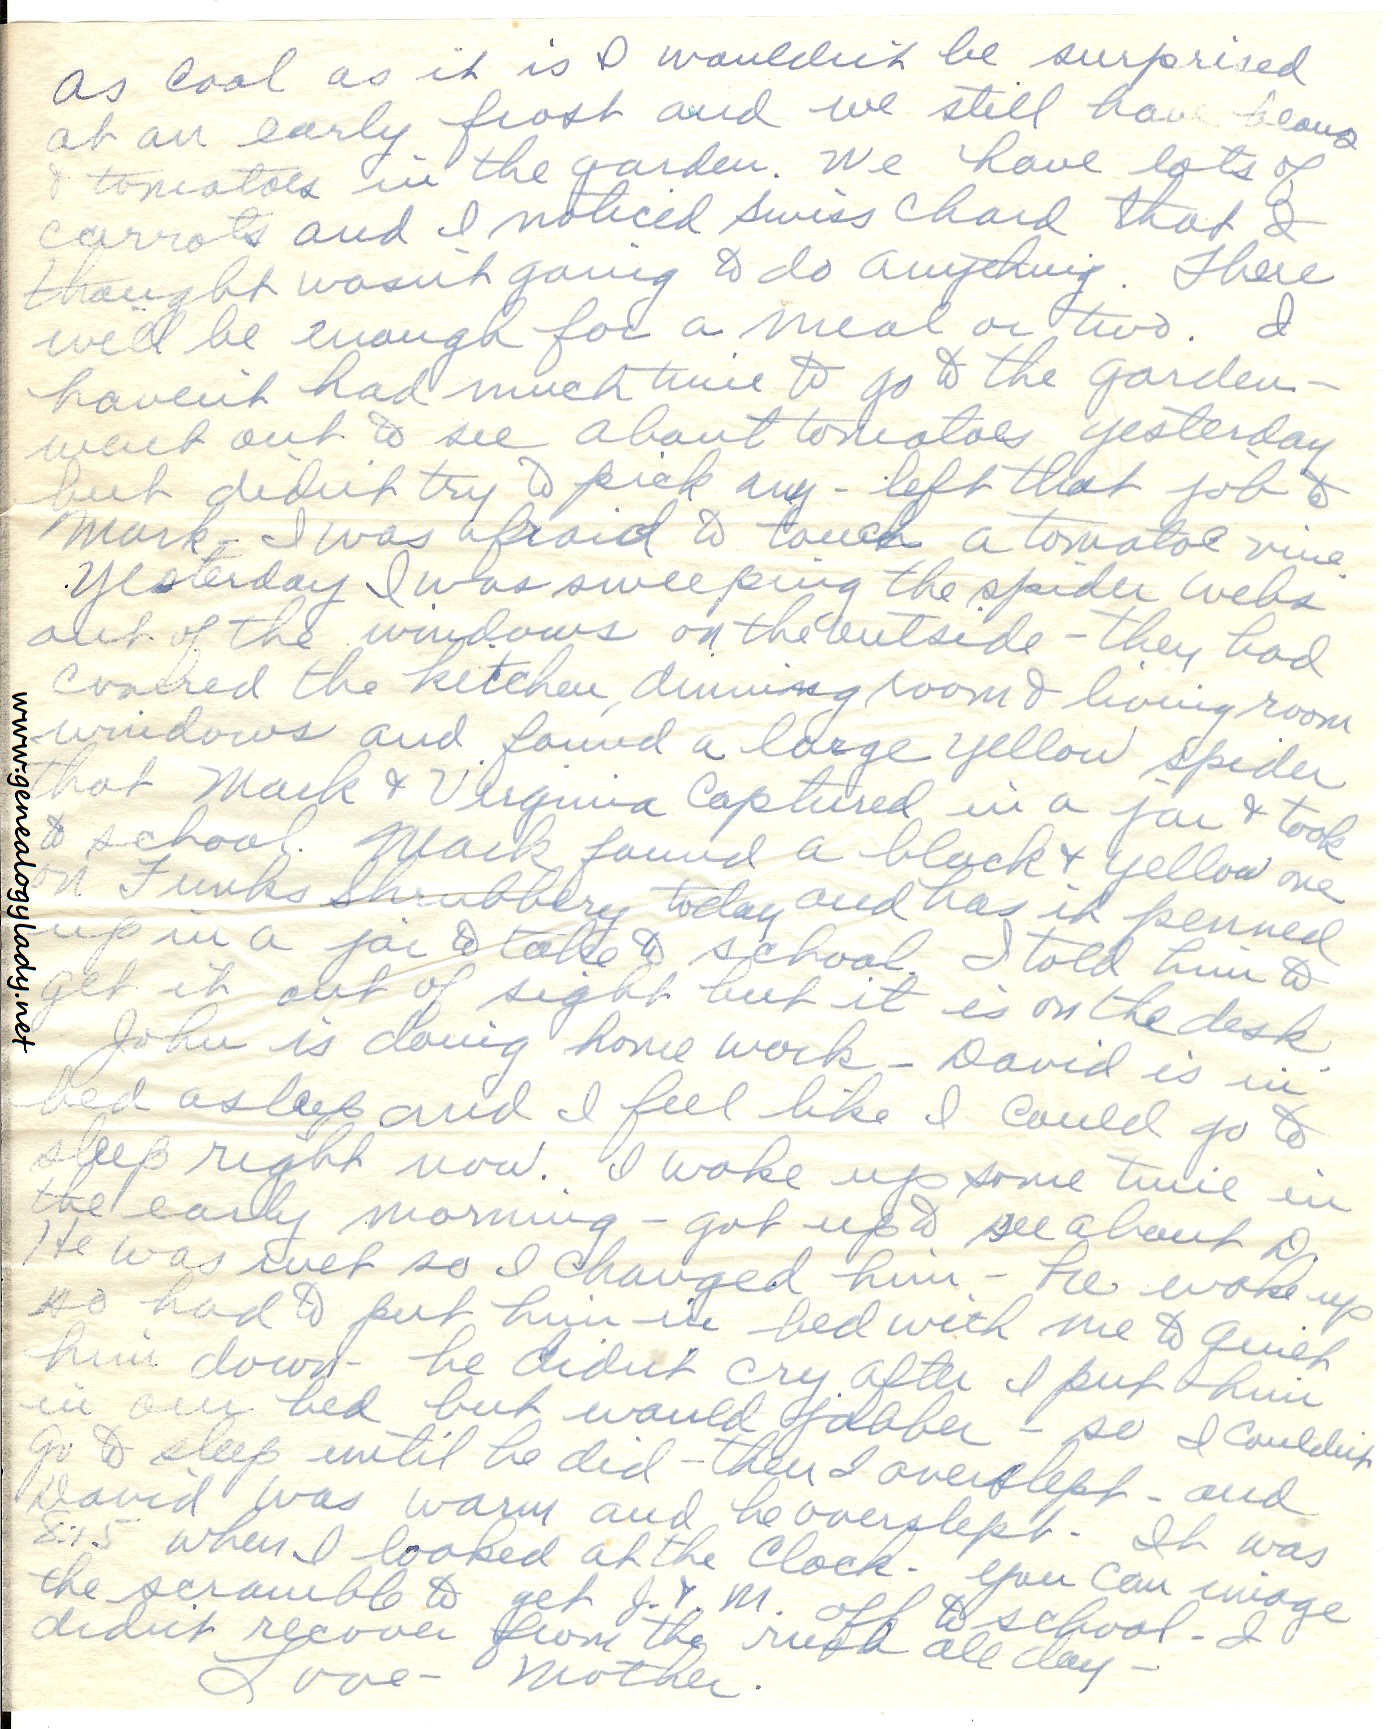 As cool as it is I wouldn't be surprised
at an early frost and we still have beans
& tomatoes in the garden. We have lots of
carrots and I noticed swiss chard that I
thought wasn't going to do anything. There
will be enough for a meal or two. I
haven't had much time to go to the garden -
went out to see about tomatoes yesterday
but didn't try to pick any - left that job to
Mark - I was afraid to touch a tomatoe vine.
Yesterday I was sweeping the spider webs
out of the windows on the outside - they had
covered the kitchen, dinning room & living room
windows and found a large yellow spider
that Mark & Virginia captured in a jar & took
to school. Mark found a black & yellow one
on Funks shrubbery today and has it penned
up in a jar to take to school. I told him to
get it out of sight but it is on the desk
John is doing home work - David is in
bed asleep and I feel like I could go to
sleep right now. I woke up some time in
the early morning - got up to see about D.
He was wet so I changed him - he woke up
so had to put him in bed with me to quiet
him down - he didn't cry after I put him
in our bed but would jabber - so I couldn't
go to sleep until he did - then I overslept - and
David was warm and he overslept - It was
8:15 when I looked at the clock - you can image
the scramble to get J. & M. off to school - I
didn't recover from the rush all day -
Love - Mother.
www.genealogylady.net